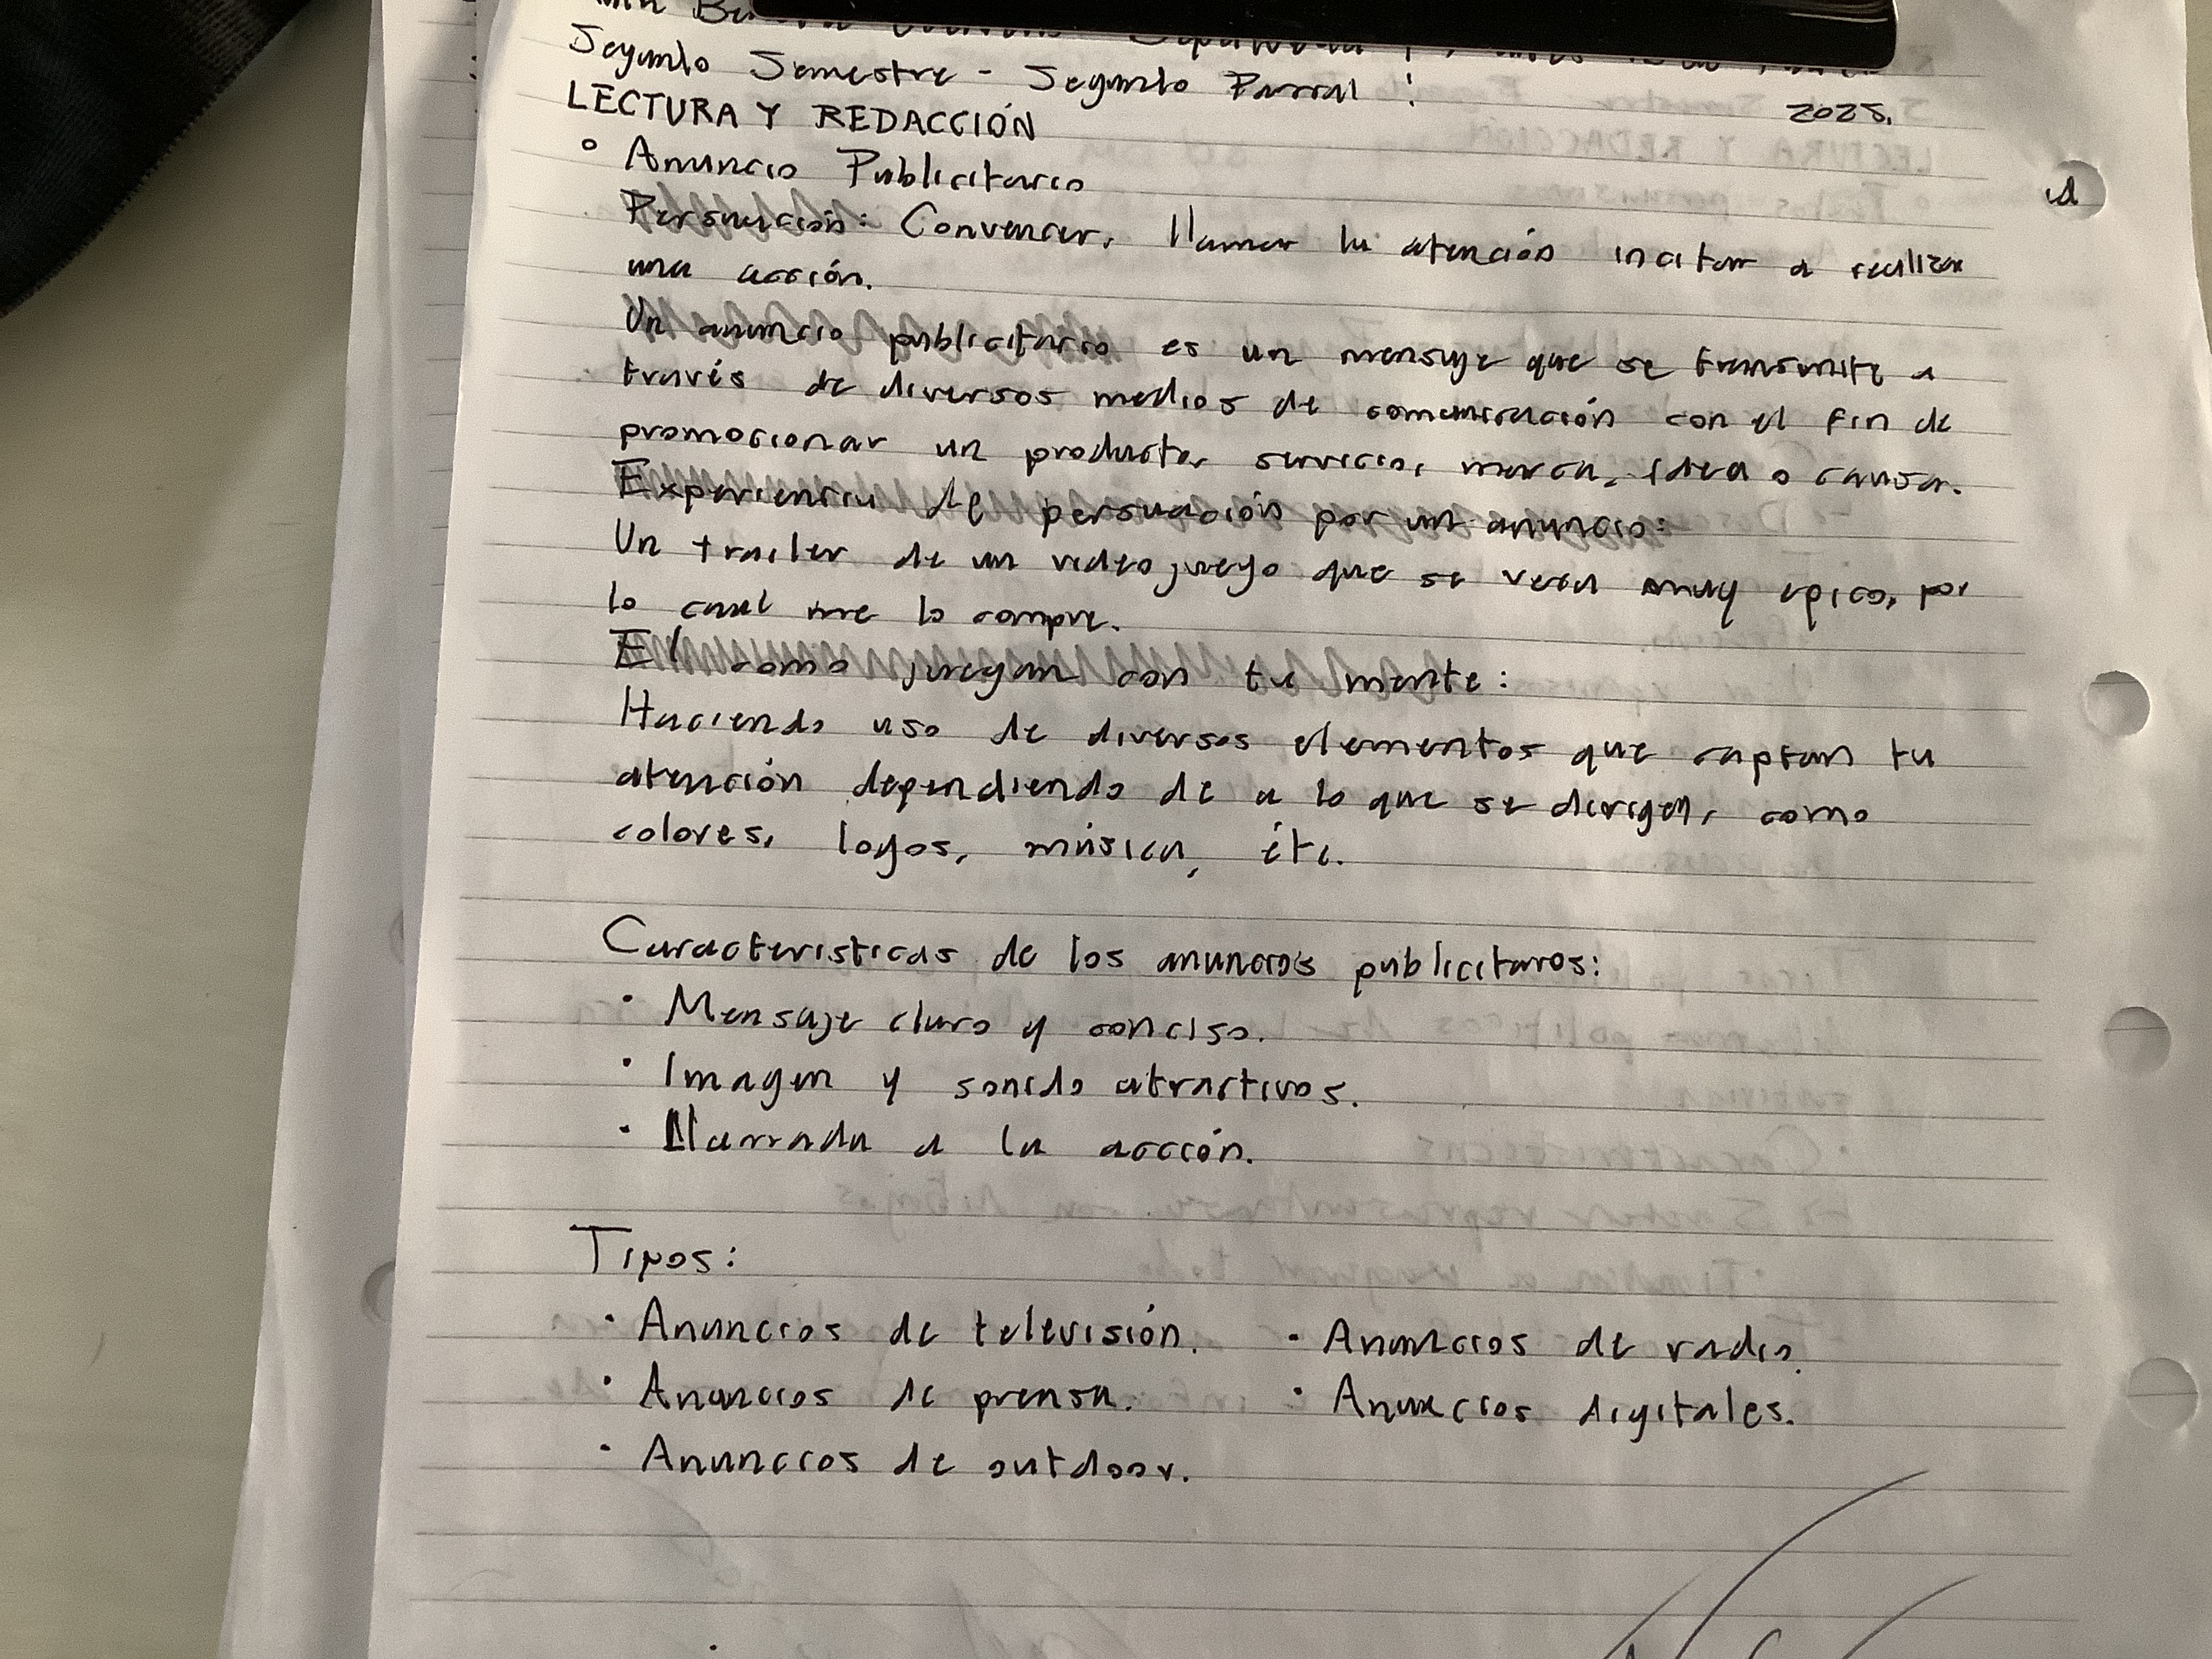 Segundo Semestre - Segundo Parcial !
LECTURA Y REDACCIÓN 2025.
° Anuncio Publicitario
Persuación: Convencer, llamar la atención incitar a realizar
una acción.
Un anuncio publicitario es un mensaje que se transmite a
través de diversos medios de comunicación con el fin de
promocionar un producto, servicio, marca, idea o causa.
Experiencia de persuación por un anuncio:
Un trailer de un videojuego que se veía muy epico, por
lo cual me lo compre.
El como juegan con tu mente:
Haciendo uso de diversos elementos que captan tu
atención dependiendo de a lo que se dirigen, como
colores, logos, música, étc.
Caracteristicas de los anuncios publicitaros:
· Mensaje claro y conciso.
· Imagen y sonido atractivos.
· Llamada a la acción.
Tipos:
· Anuncios de televisión. · Anuncios de radio.
· Anuncios de prensa. · Anuncios digitales.
· Anuncios de outdoor.